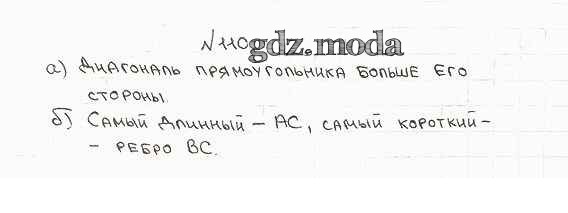 № 110 gdz.moda
а) Диагональ прямоугольника больше его
стороны.
б) Самый длинный – АС, самый короткий –
– ребро ВС.